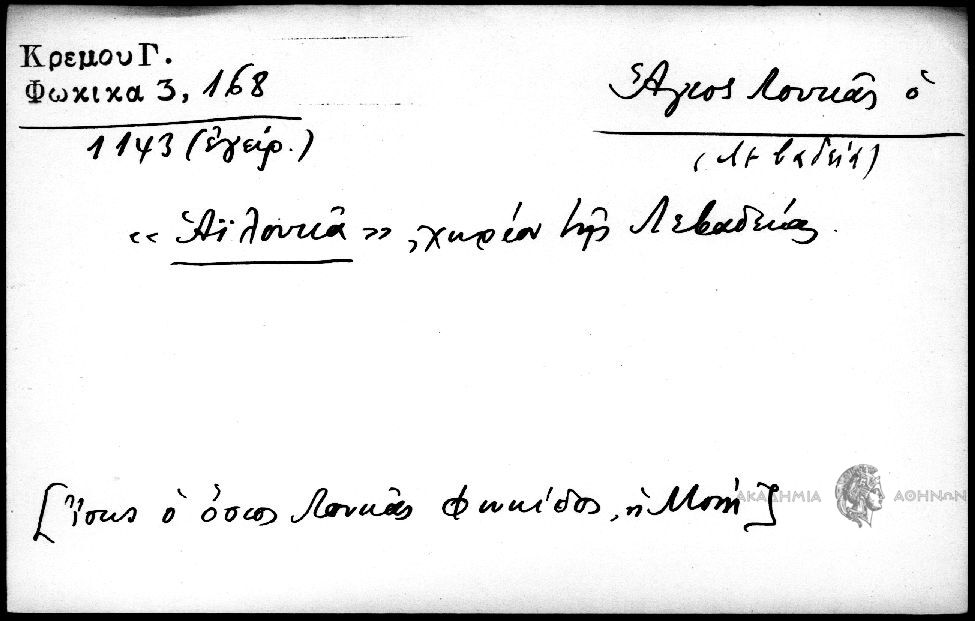 Κρεμου Γ.
Φωκικα 3, 168
1143 (ἔγειρ.)
Ἅγιος Λουκᾶς ὁ
(Λεβαδεία)
«Ἁϊλουκᾶ», χωρίον τῆς Λεβαδείας.
[Ἴσως ὁ ὅσιος Λουκᾶς Φωκίδος, ἡ Μονή]
ΑΚΑΔΗΜΙΑ ΑΘΗΝΩΝ